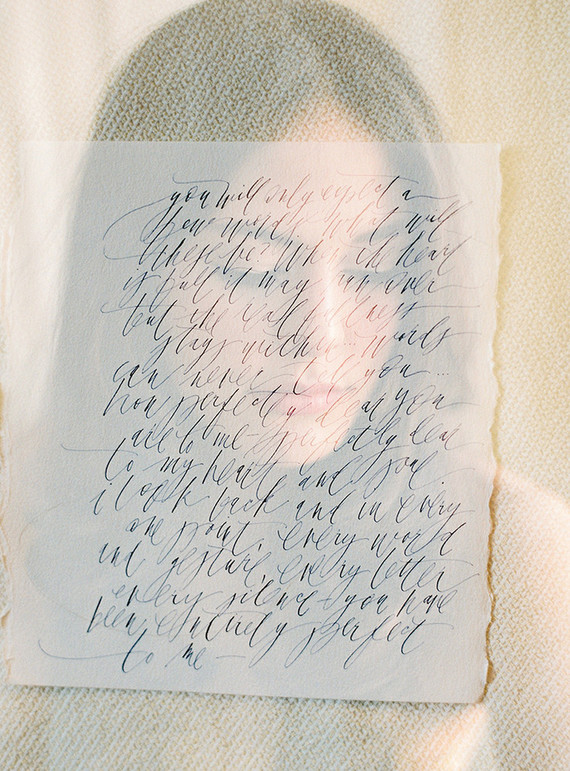 you will only expect a
few words. what will
these be? When the heart
is full it may run over
but the real fullness
stays within... words
can never tell you ...
how perfectly dear you
are to me - perfectly dear
to my heart and soul.
i look back and in every
one point, every word
and gesture, every letter
every silence - you have
been entirely perfect
to me -